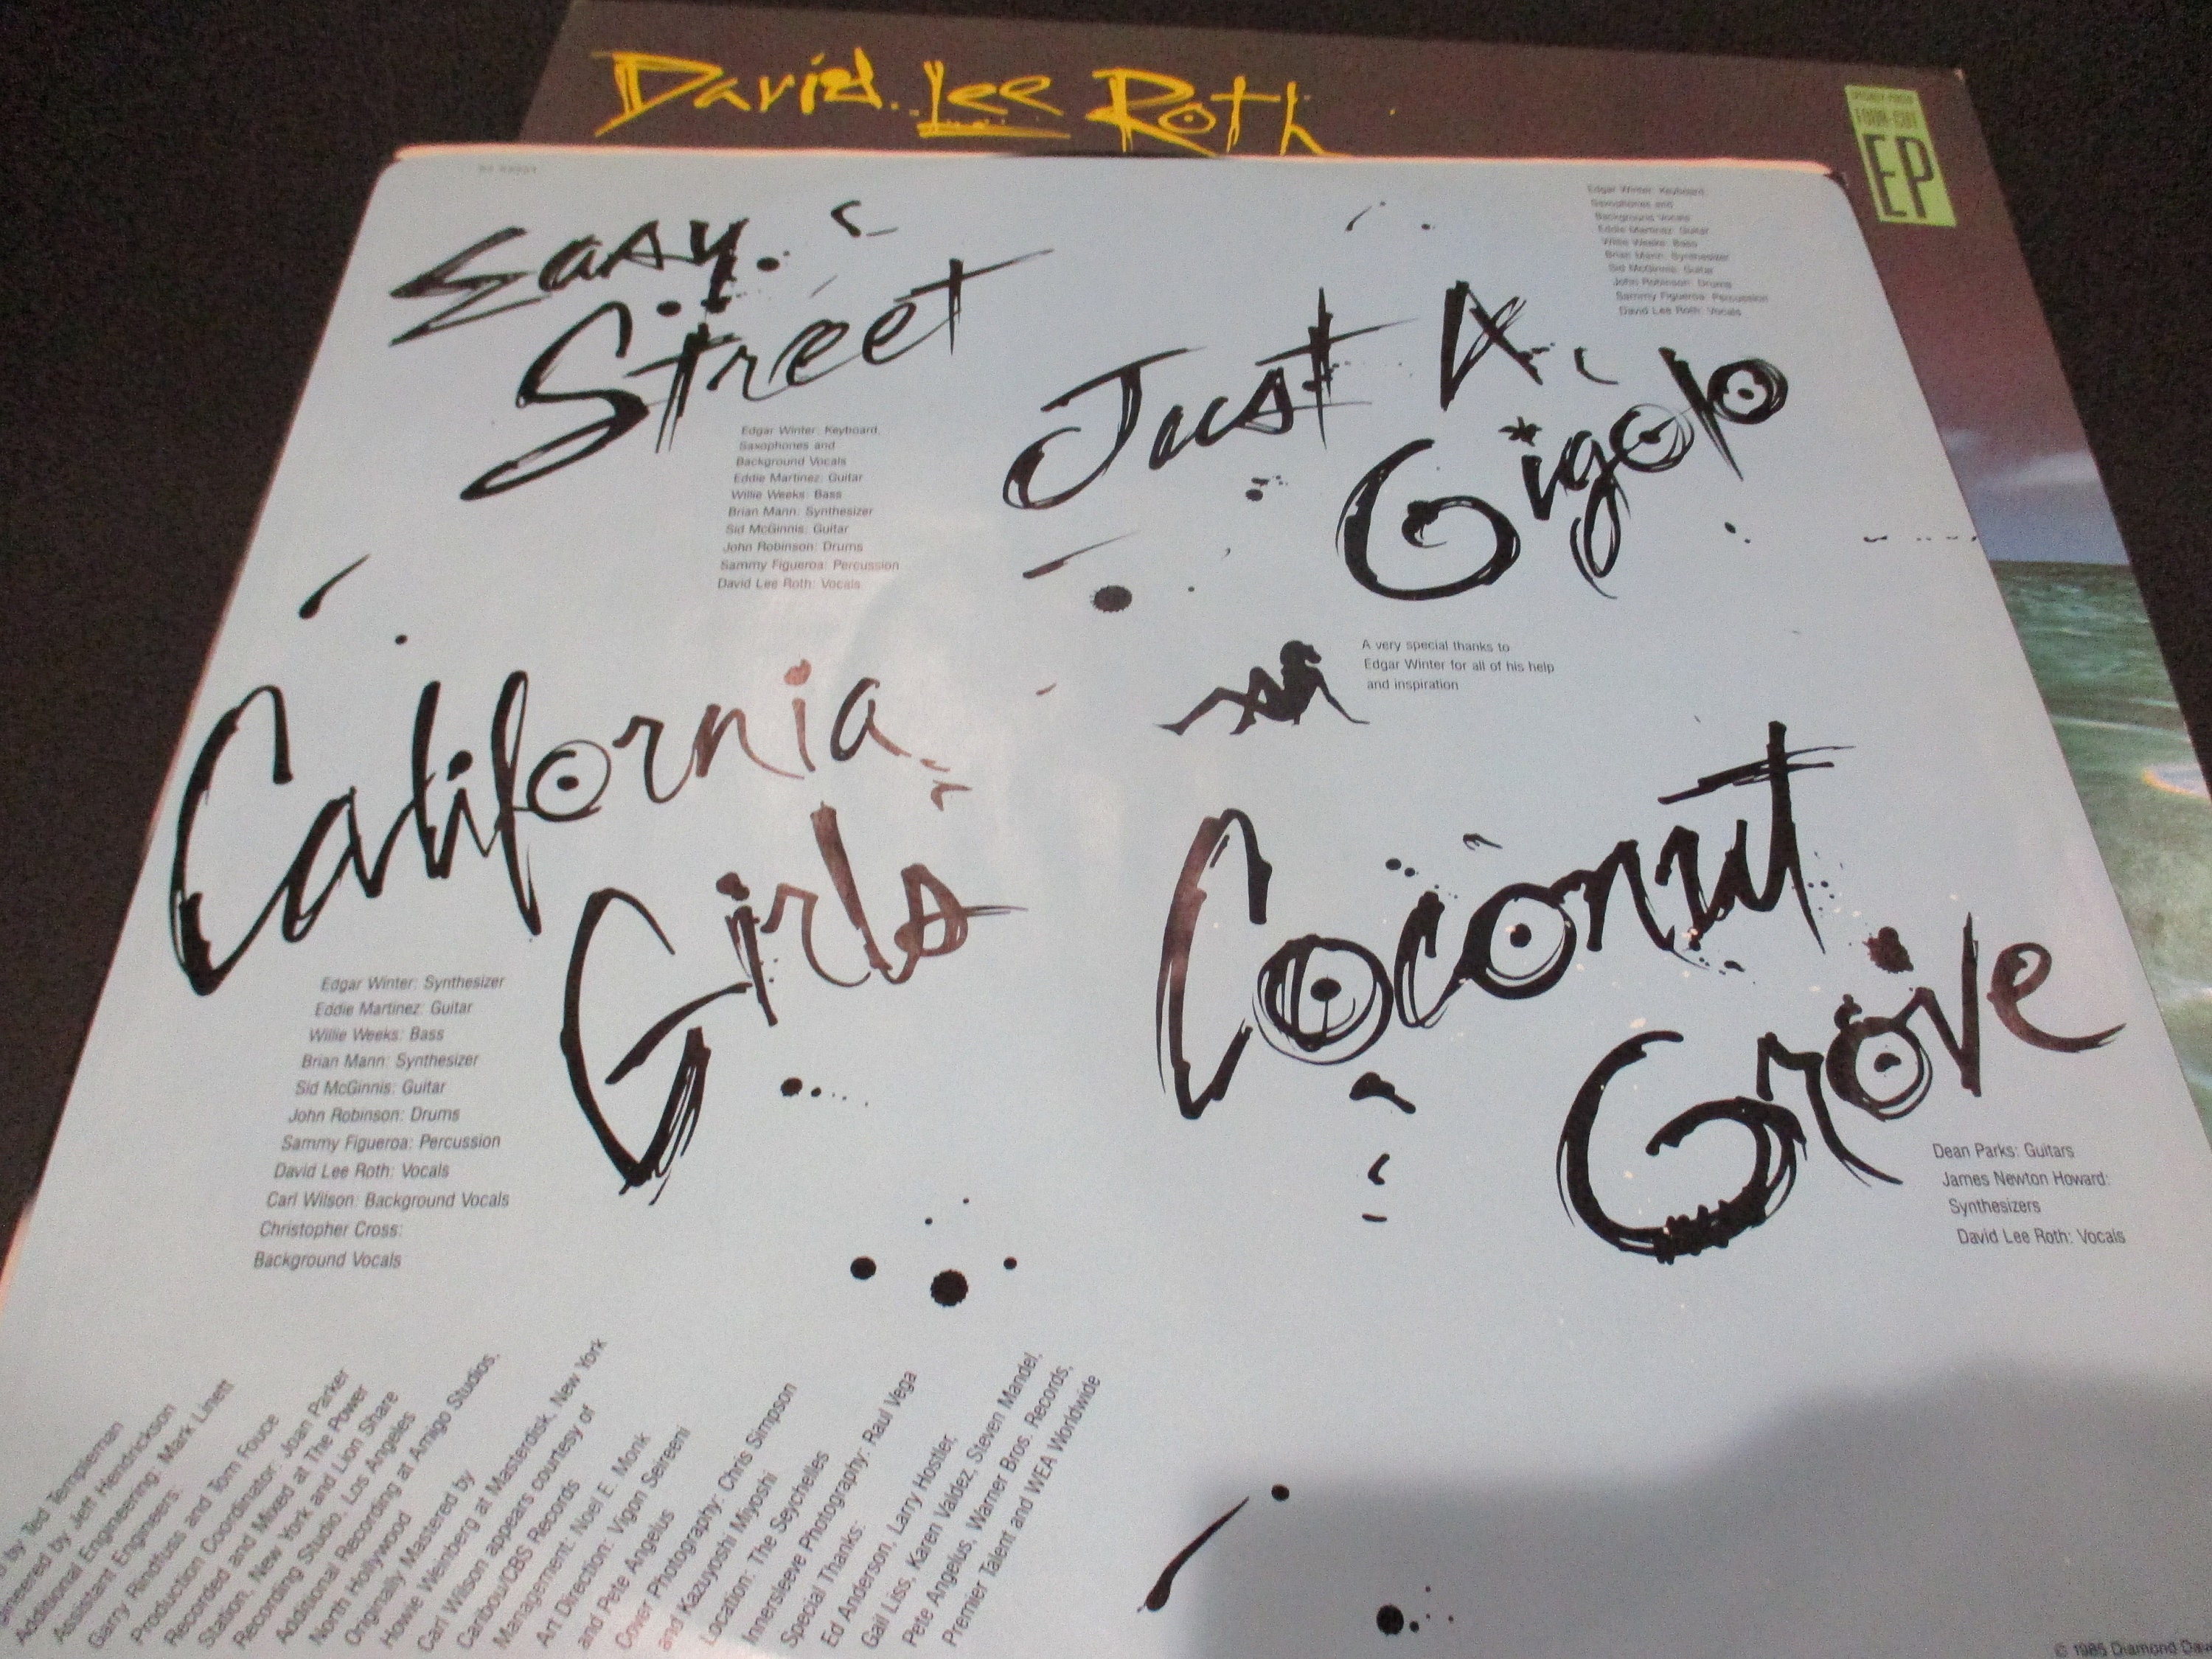 David Lee Roth
FOUR-CUT
EP
Easy
Street
Edgar Winter: Keyboard,
Saxophones and
Background Vocals
Eddie Martinez: Guitar
Willie Weeks: Bass
Brian Mann: Synthesizer
Sid McGinnis: Guitar
John Robinson: Drums
Sammy Figueroa: Percussion
David Lee Roth: Vocals
Just A
Gigolo
Edgar Winter: Keyboard,
Saxophones and
Background Vocals
Eddie Martinez: Guitar
Willie Weeks: Bass
Brian Mann: Synthesizer
Sid McGinnis: Guitar
John Robinson: Drums
Sammy Figueroa: Percussion
David Lee Roth: Vocals
A very special thanks to
Edgar Winter for all of his help
and inspiration
California
Girls
Edgar Winter: Synthesizer
Eddie Martinez: Guitar
Willie Weeks: Bass
Brian Mann: Synthesizer
Sid McGinnis: Guitar
John Robinson: Drums
Sammy Figueroa: Percussion
David Lee Roth: Vocals
Carl Wilson: Background Vocals
Christopher Cross:
Background Vocals
Coconut
Grove
Dean Parks: Guitars
James Newton Howard:
Synthesizers
David Lee Roth: Vocals
by Ted Templeman
gineered by Jeff Hendrickson
Additional Engineering: Mark Linett
Assistant Engineers:
Garry Rindfuss and Tom Fouce
Production Coordinator: Joan Parker
Recorded and Mixed at The Power
Station, New York and Lion Share
Recording Studio, Los Angeles
Additional Recording at Amigo Studios,
North Hollywood
Originally Mastered by
Howie Weinberg at Masterdisk, New York
Carl Wilson appears courtesy of
Caribou/CBS Records
Management: Noel E. Monk
Art Direction: Vigon Seireeni
and Pete Angelus
Cover Photography: Chris Simpson
and Kazuyoshi Miyoshi
Location: The Seychelles
Innersleeve Photography: Raul Vega
Special Thanks:
Ed Anderson, Larry Hostler,
Gail Liss, Karen Valdez, Steven Mandel,
Pete Angelus, Warner Bros. Records,
Premier Talent and WEA Worldwide
© 1985 Diamond Dave